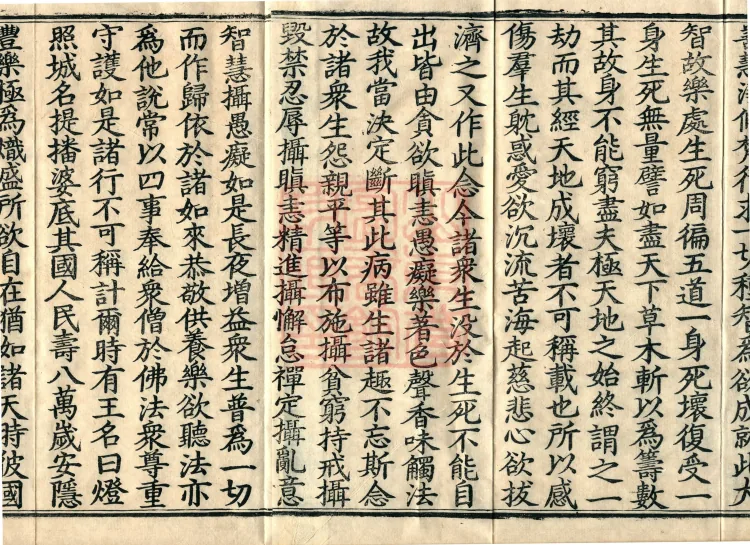 善慧
行
一切種
爲欲成就此大
智故樂處生死周徧五道一身死壞復受一
身生死無量譬如盡天下草木斬以爲籌數
其故身不能窮盡夫極天地之始終謂之一
劫而其經天地成壞者不可稱載也所以感
傷羣生躭惑愛欲沉流苦海起慈悲心欲拔
濟之又作此念今諸衆生没於生死不能自
出皆由貪欲瞋恚愚癡樂著色聲香味觸法
故我當決定斷其此病雖生諸趣不忘斯念
於諸衆生怨親平等以布施攝貧窮持戒攝
毀禁忍辱攝瞋恚精進攝懈怠禪定攝亂意
智慧攝愚癡如是長夜增益衆生普爲一切
而作歸依於諸如來恭敬供養樂欲聽法亦
爲他說常以四事奉給衆僧於佛法衆尊重
守護如是諸行不可稱計爾時有王名曰燈
照城名提播婆底其國人民壽八萬歲安隱
豐樂極爲熾盛所欲自在猶如諸天時彼國